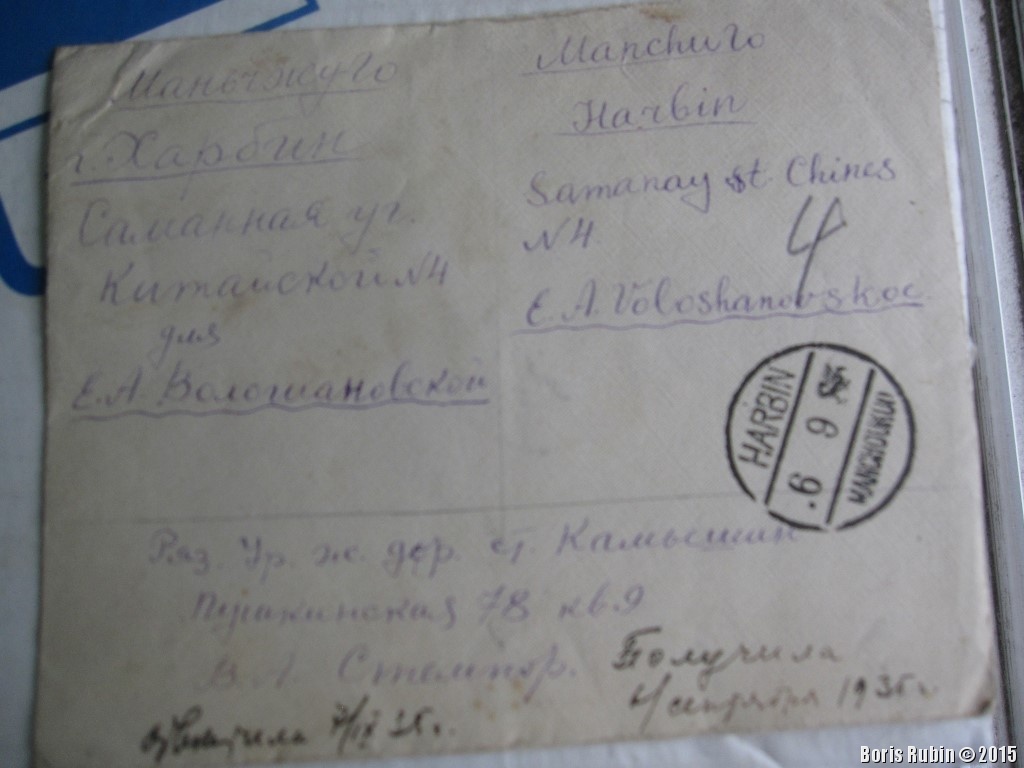 Маньчжуго
г. Харбин
Саманная уг.
Китайской N4
для
Е.А. Волошановской
Manchugo
Harbin
Samanay st. Chines
N4
4
E. A. Voloshanovskoe
HARBIN
6 9
MANCHOUKUO
Ряз. Ур. ж. дор. ст. Камышин
Пушкинская 78 кв. 9
В. А.
Получила
сентября 1935 г.
ответила 7/IX 35 г.
Boris Rubin © 2015